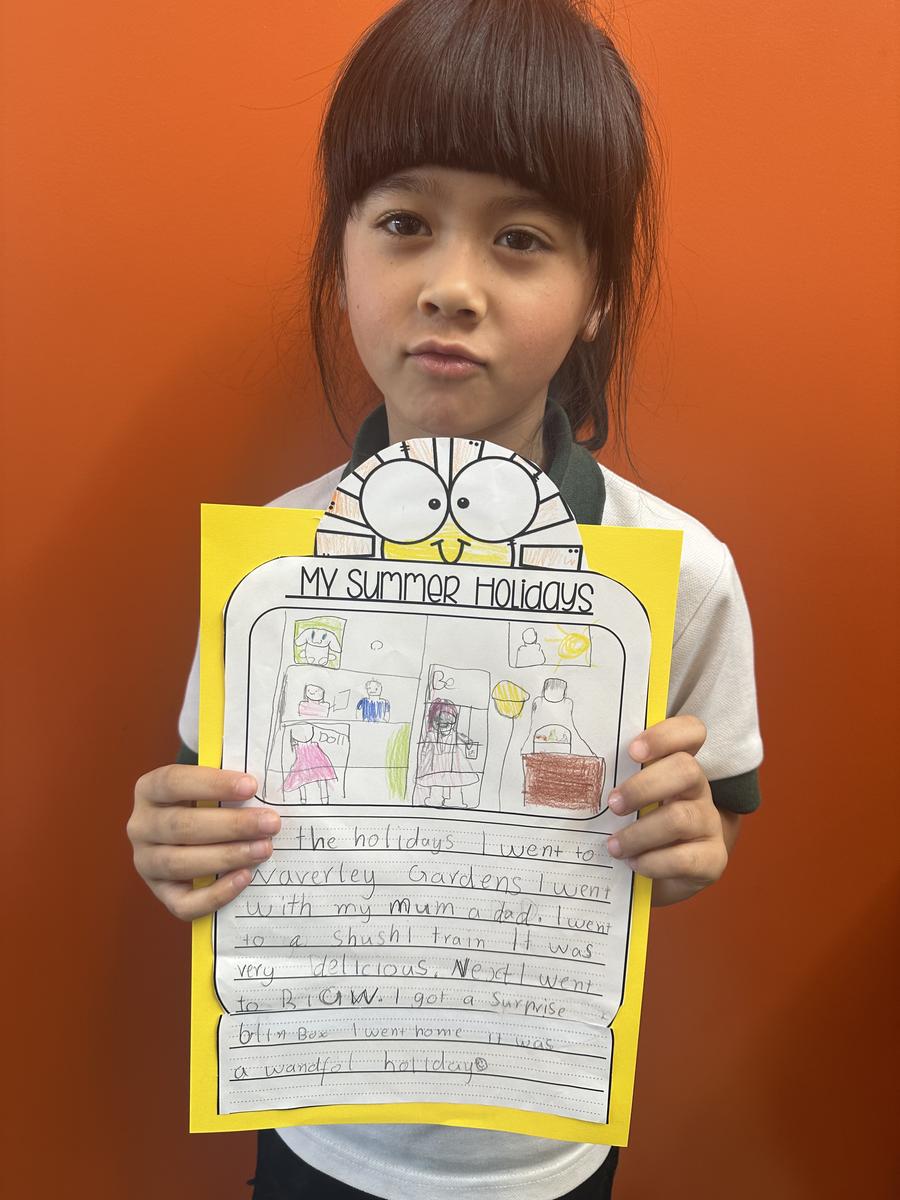 MY SUMMER HOLIDAYS
Doll
Be
the holidays I went to
Waverley Gardens I went
with my mum a dad. I went
to a shushI train It was
very delicious. Next I went
to BIGW. I got a surprise
blin Box I went home It was
a wandfol holiday